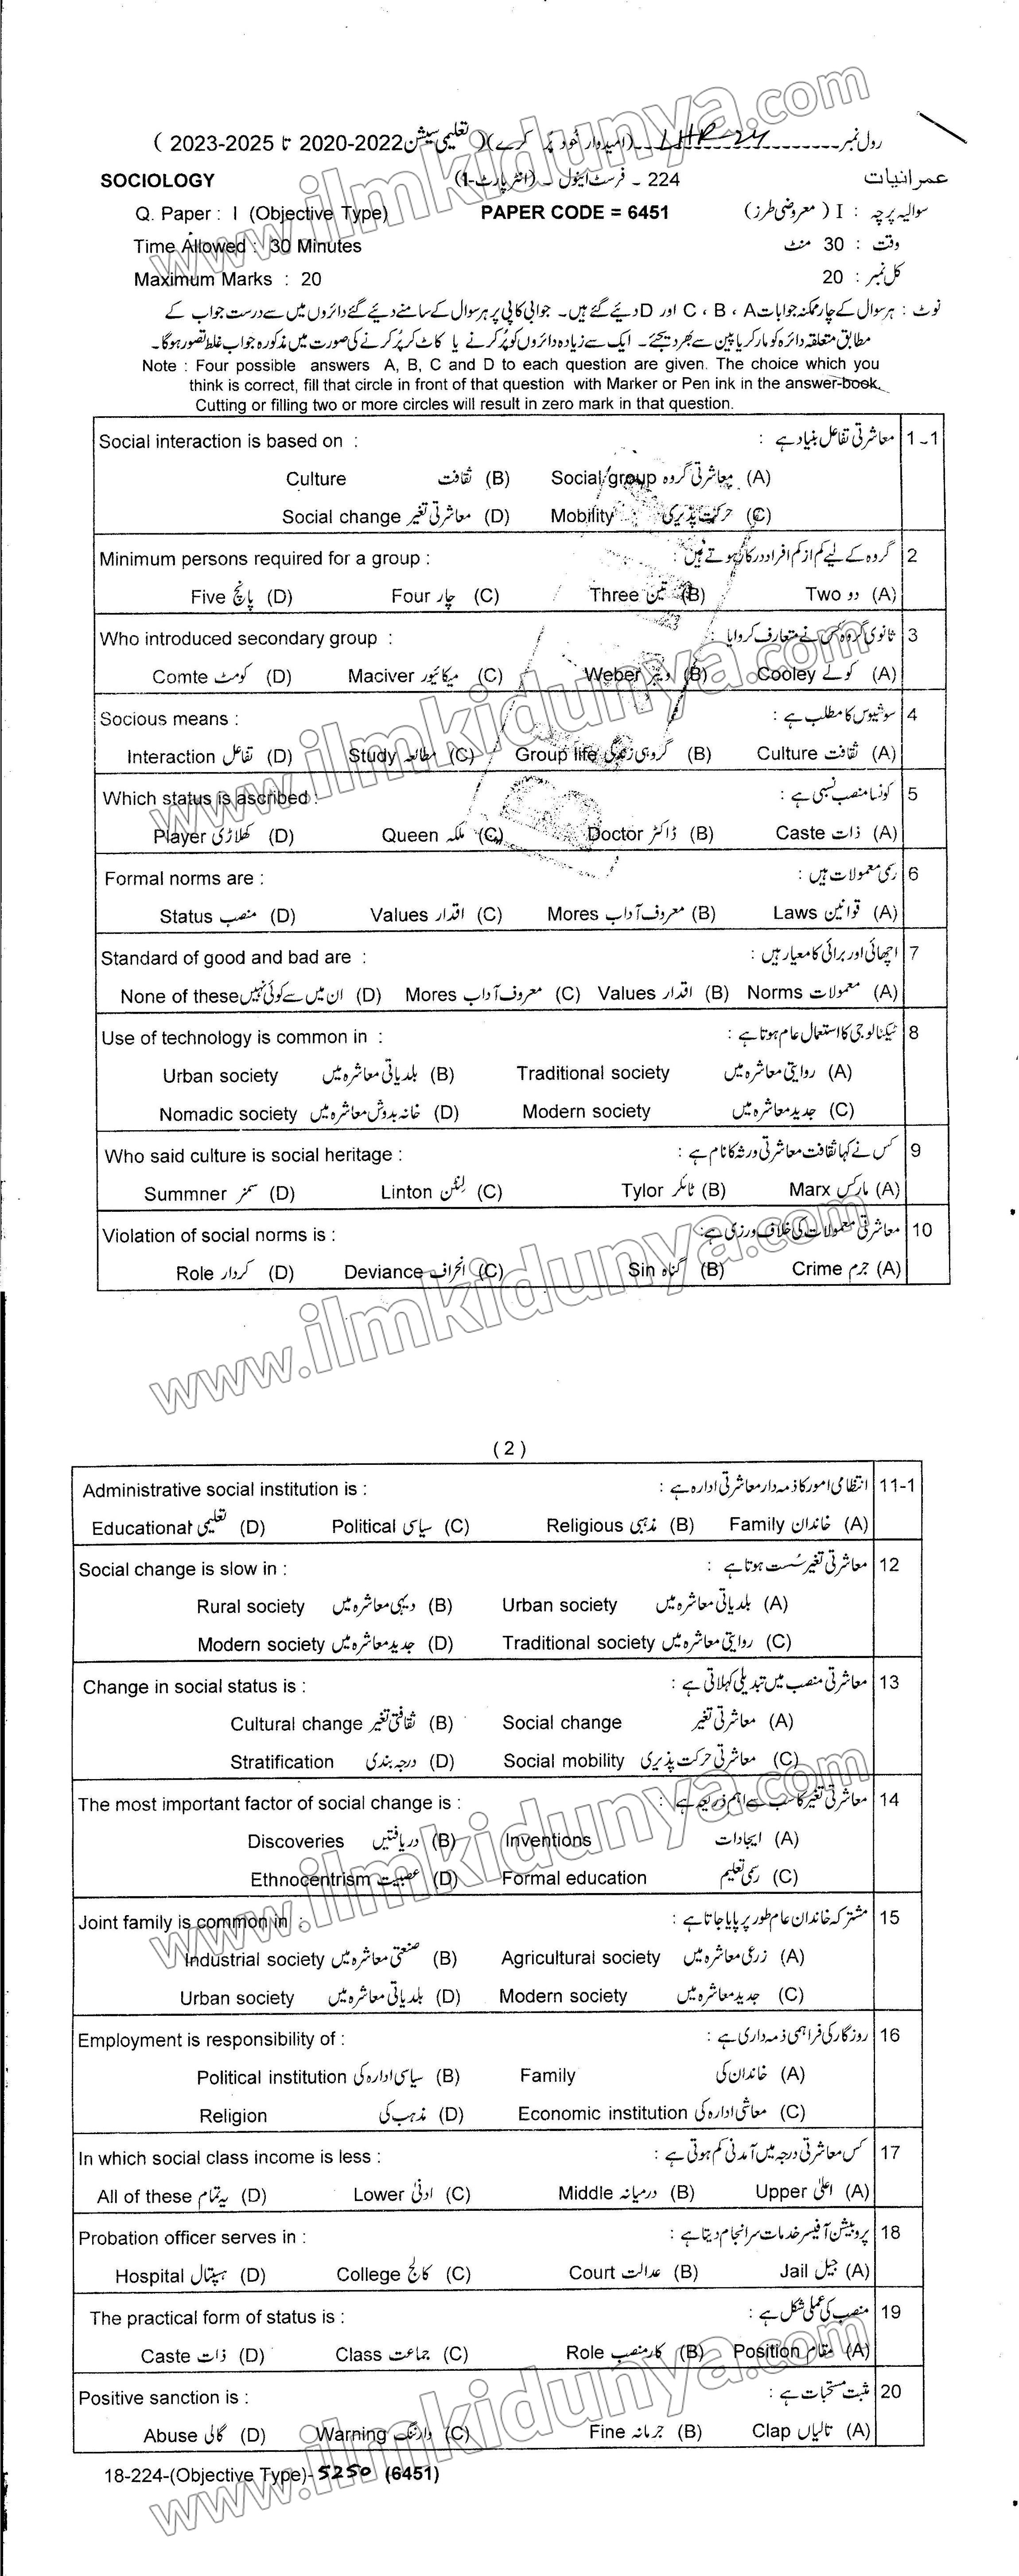 رول نمبر LHR-24 (امیدوار خود پُر کرے) (تعلیمی سیشن 2020-2022 تا 2023-2025)
SOCIOLOGY 224 - فرسٹ اینول - (انٹر پارٹ-1) عمرانیات
Q. Paper : I (Objective Type) PAPER CODE = 6451 سوالیہ پرچہ : I (معروضی طرز)
Time Allowed : 30 Minutes وقت : 30 منٹ
Maximum Marks : 20 کل نمبر : 20
نوٹ : ہر سوال کے چار ممکنہ جوابات C ، B ، A اور D دیئے گئے ہیں۔ جوابی کاپی پر ہر سوال کے سامنے دیئے گئے دائروں میں سے درست جواب کے
مطابق متعلقہ دائرہ کو مارکر یا پین سے بھر دیجئے۔ ایک سے زیادہ دائروں کو پُر کرنے یا کاٹ کر پُر کرنے کی صورت میں مذکورہ جواب غلط تصور ہوگا۔
Note : Four possible answers A, B, C and D to each question are given. The choice which you
think is correct, fill that circle in front of that question with Marker or Pen ink in the answer-book.
Cutting or filling two or more circles will result in zero mark in that question.
Social interaction is based on : معاشرتی تفاعل بنیاد ہے : 1-1
Culture ثقافت (B) Social group معاشرتی گروہ (A)
Social change معاشرتی تغیر (D) Mobility حرکت پذیری (C)
Minimum persons required for a group : گروہ کے لیے کم از کم افراد درکار ہوتے ہیں : 2
Five پانچ (D) Four چار (C) Three تین (B) Two دو (A)
Who introduced secondary group : ثانوی گروہ کس نے متعارف کروایا : 3
Comte کومٹ (D) Maciver میکائیور (C) Weber ویبر (B) Cooley کولے (A)
Socious means : سوشیوس کا مطلب ہے : 4
Interaction تفاعل (D) Study مطالعہ (C) Group life گروہی زندگی (B) Culture ثقافت (A)
Which status is ascribed : کونسا منصب نسبی ہے : 5
Player کھلاڑی (D) Queen ملکہ (C) Doctor ڈاکٹر (B) Caste ذات (A)
Formal norms are : رسمی معمولات ہیں : 6
Status منصب (D) Values اقدار (C) Mores معروف آداب (B) Laws قوانین (A)
Standard of good and bad are : اچھائی اور برائی کا معیار ہیں : 7
None of these ان میں سے کوئی نہیں (D) Mores معروف آداب (C) Values اقدار (B) Norms معمولات (A)
Use of technology is common in : ٹیکنالوجی کا استعمال عام ہوتا ہے : 8
Urban society بلدیاتی معاشرہ میں (B) Traditional society روایتی معاشرہ میں (A)
Nomadic society خانہ بدوش معاشرہ میں (D) Modern society جدید معاشرہ میں (C)
Who said culture is social heritage : کس نے کہا ثقافت معاشرتی ورثہ کا نام ہے : 9
Summner سمنر (D) Linton لنٹن (C) Tylor ٹائلر (B) Marx مارکس (A)
Violation of social norms is : معاشرتی معمولات کی خلاف ورزی ہے : 10
Role کردار (D) Deviance انحراف (C) Sin گناہ (B) Crime جرم (A)
(2)
Administrative social institution is : انتظامی امور کا ذمہ دار معاشرتی ادارہ ہے : 11-1
Educational تعلیمی (D) Political سیاسی (C) Religious مذہبی (B) Family خاندان (A)
Social change is slow in : معاشرتی تغیر سُست ہوتا ہے : 12
Rural society دیہی معاشرہ میں (B) Urban society بلدیاتی معاشرہ میں (A)
Modern society جدید معاشرہ میں (D) Traditional society روایتی معاشرہ میں (C)
Change in social status is : معاشرتی منصب میں تبدیلی کہلاتی ہے : 13
Cultural change ثقافتی تغیر (B) Social change معاشرتی تغیر (A)
Stratification درجہ بندی (D) Social mobility معاشرتی حرکت پذیری (C)
The most important factor of social change is : معاشرتی تغیر کا سب سے اہم ذریعہ ہے : 14
Discoveries دریافتیں (B) Inventions ایجادات (A)
Ethnocentrism عصبیت (D) Formal education رسمی تعلیم (C)
Joint family is common in : مشترکہ خاندان عام طور پر پایا جاتا ہے : 15
Industrial society صنعتی معاشرہ میں (B) Agricultural society زرعی معاشرہ میں (A)
Urban society بلدیاتی معاشرہ میں (D) Modern society جدید معاشرہ میں (C)
Employment is responsibility of : روزگار کی فراہمی ذمہ داری ہے : 16
Political institution سیاسی ادارہ کی (B) Family خاندان کی (A)
Religion مذہب کی (D) Economic institution معاشی ادارہ کی (C)
In which social class income is less : کس معاشرتی درجہ میں آمدنی کم ہوتی ہے : 17
All of these یہ تمام (D) Lower ادنیٰ (C) Middle درمیانہ (B) Upper اعلیٰ (A)
Probation officer serves in : پروبیشن آفیسر خدمات سرانجام دیتا ہے : 18
Hospital ہسپتال (D) College کالج (C) Court عدالت (B) Jail جیل (A)
The practical form of status is : منصب کی عملی شکل ہے : 19
Caste ذات (D) Class جماعت (C) Role کار منصب (B) Position مقام (A)
Positive sanction is : مثبت مستحبات ہے : 20
Abuse گالی (D) Warning وارننگ (C) Fine جرمانہ (B) Clap تالیاں (A)
18-224-(Objective Type)-5250 (6451)
www.ilmkidunya.com
www.ilmkidunya.com
www.ilmkidunya.com
www.ilmkidunya.com
www.ilmkidunya.com